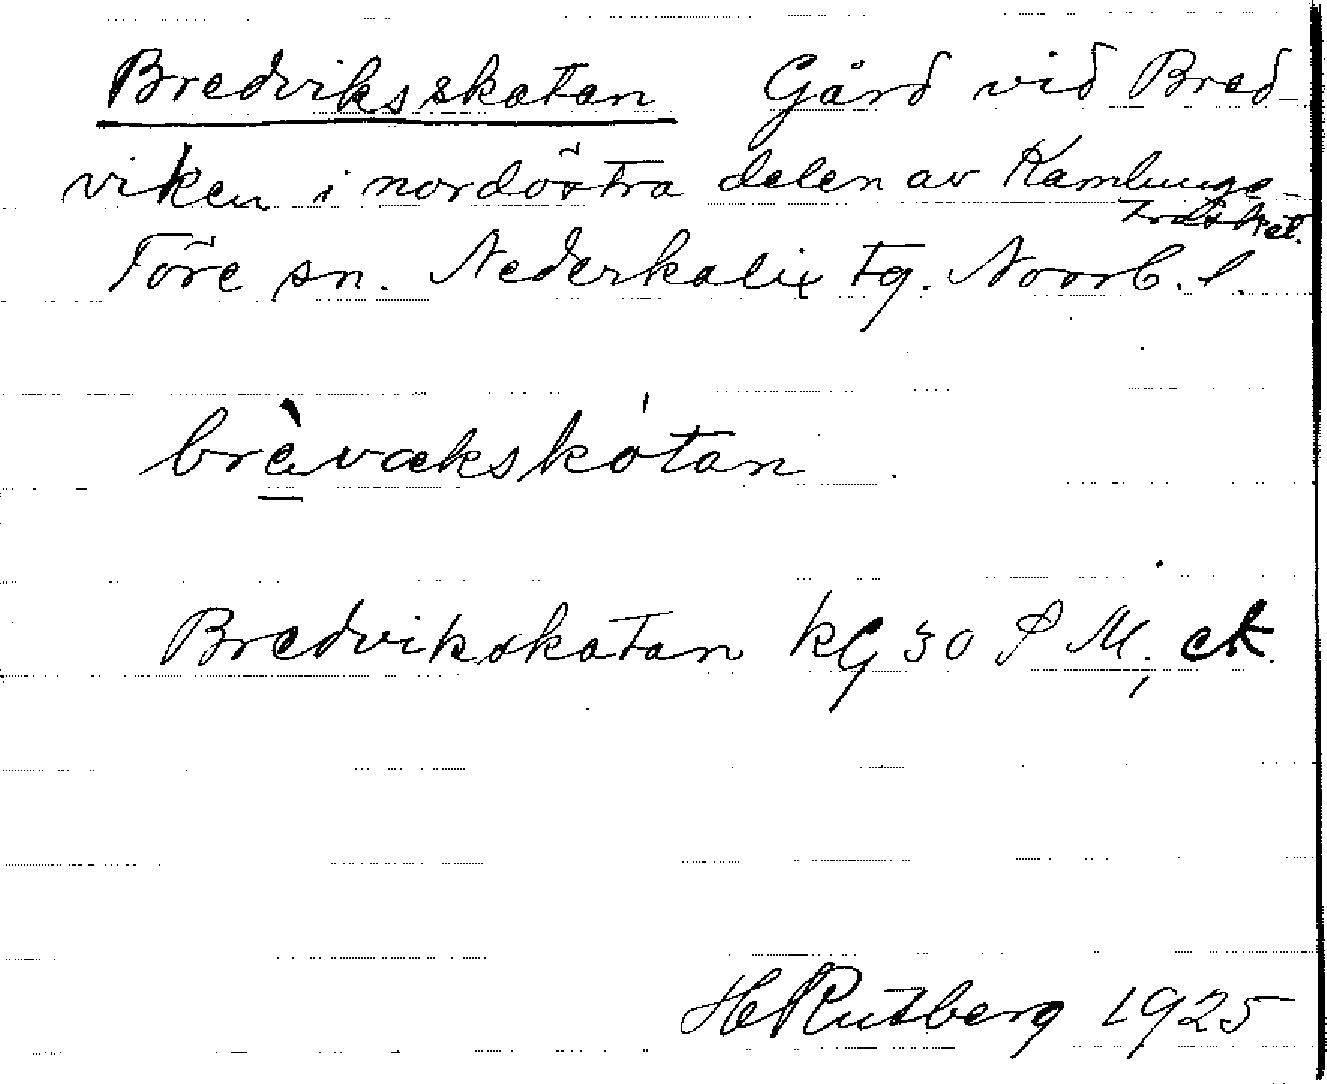 Bredviksskatan Gård vid Bred-
viken i nordöstra delen av Kamlunge-
träsket.
Töre sn. Nederkalix tg. Norrb. l.
brèvækskótan
Bredvikskatan kG 30 S M; ek.
H Rutberg 1925